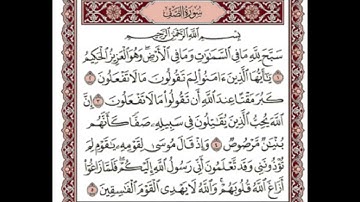 سورة الصف
بسم الله الرحمن الرحيم
سبح لله ما في السموت وما في الأرض وهو العزيز الحكيم
١ يأيها الذين ءامنوا لم تقولون ما لا تفعلون ٢
كبر مقتا عند الله أن تقولوا ما لا تفعلون ٣ إن
الله يحب الذين يقتلون في سبيله صفا كأنهم
بنين مرصوص ٤ وإذ قال موسى لقومه يقوم لم
تؤذونني وقد تعلمون أني رسول الله إليكم فلما زاغوا
أزاغ الله قلوبهم والله لا يهدي القوم الفسقين ٥